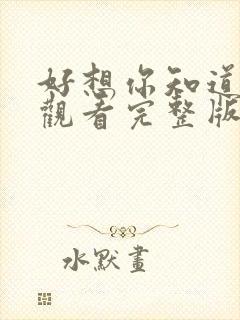 好想你知道
觀看完整版
水默畫